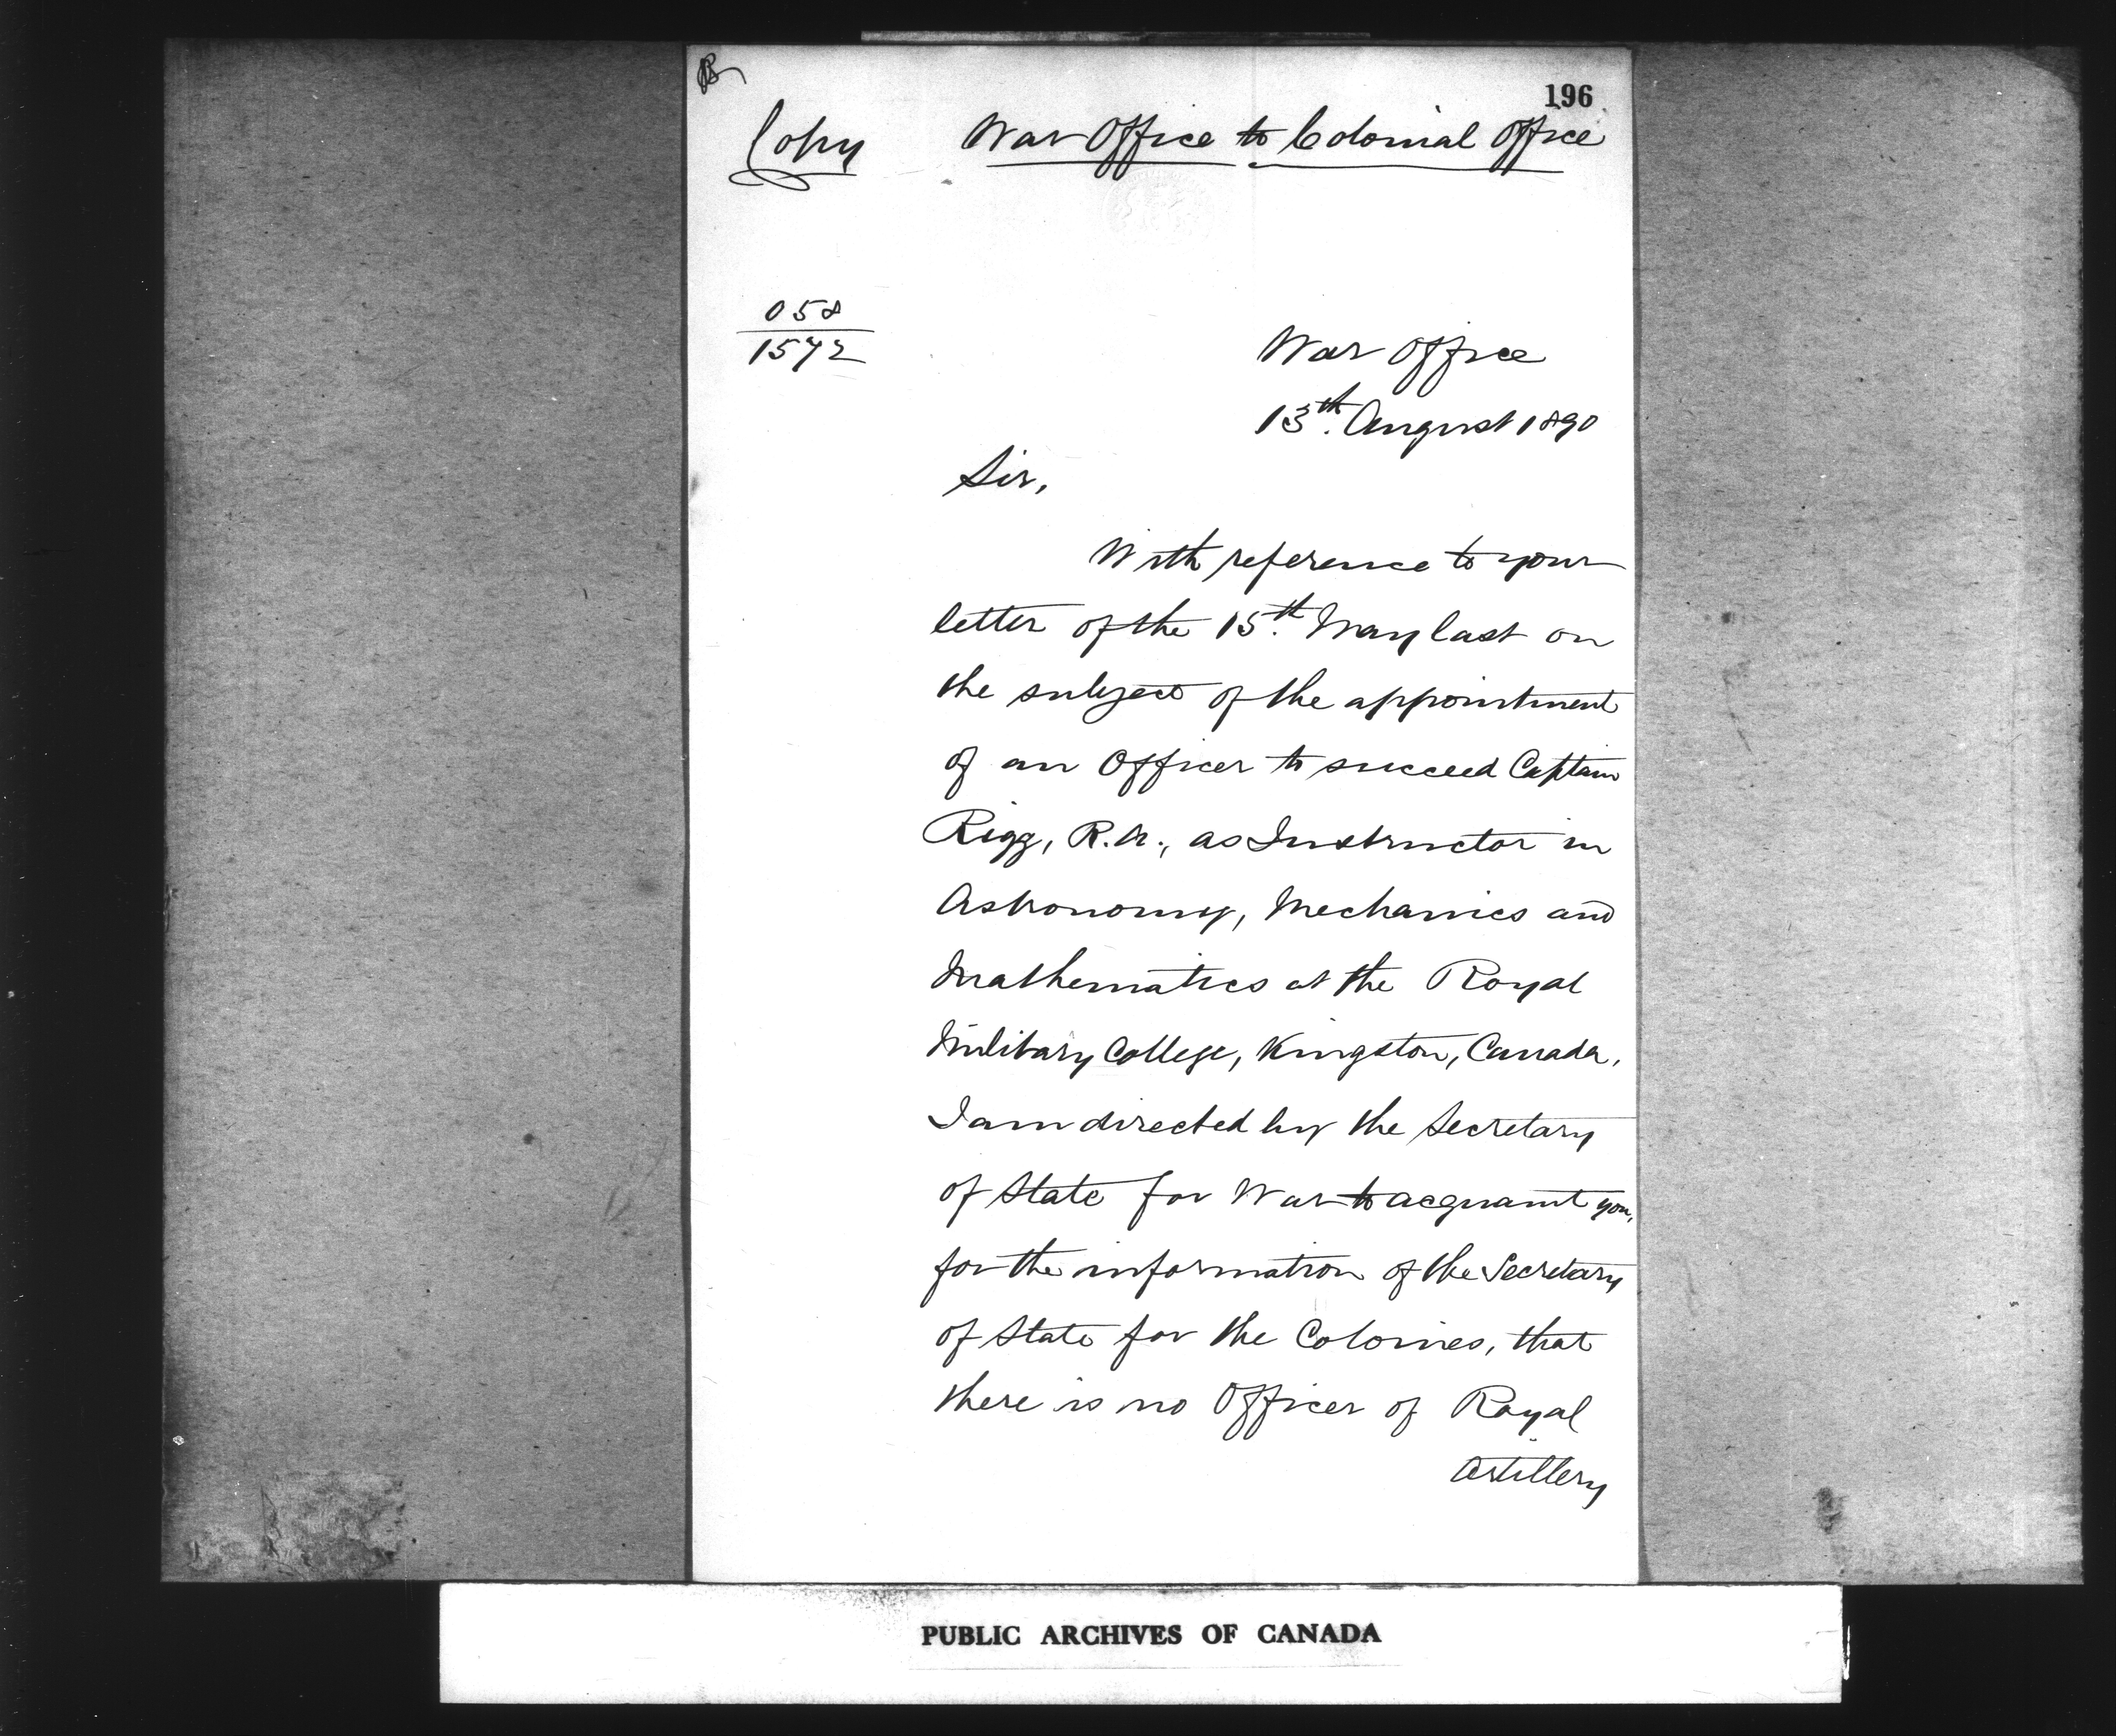 B
196
Copy War Office to Colonial Office
058
1572
War Office
13th. August 1890
Sir,
With reference to your
letter of the 15th. May last on
the subject of the appointment
of an Officer to succeed Captain
Rigg, R.A., as Instructor in
Astronomy, Mechanics and
Mathematics at the Royal
Military College, Kingston, Canada,
I am directed by the Secretary
of State for War to acquaint you,
for the information of the Secretary
of State for the Colonies, that
there is no Officer of Royal
Artillery
PUBLIC ARCHIVES OF CANADA